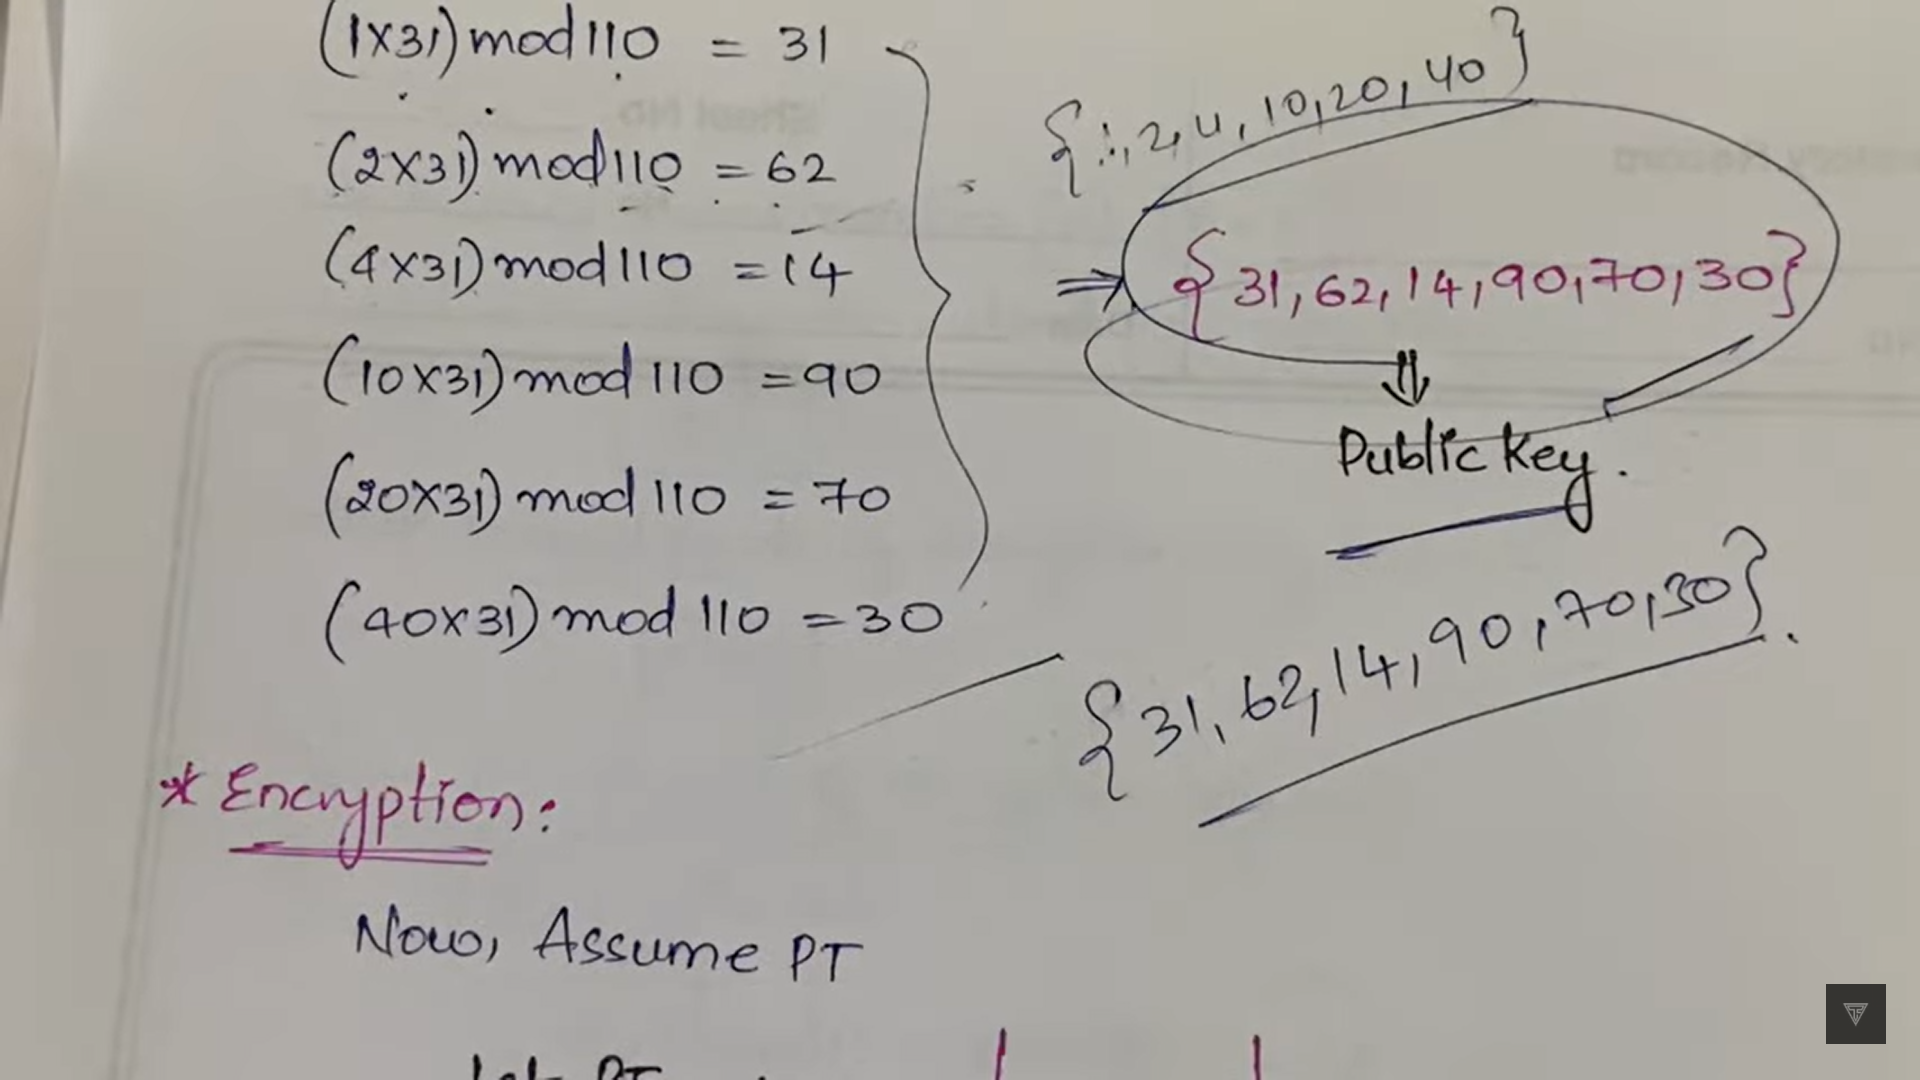 (1×31) mod 110 = 31
(2×31) mod 110 = 62
(4×31) mod 110 = 14
(10×31) mod 110 = 90
(20×31) mod 110 = 70
(40×31) mod 110 = 30
{1, 2, 4, 10, 20, 40}
⇒ {31, 62, 14, 90, 70, 30}
⇓
Public key.
{31, 62, 14, 90, 70, 30}.
* Encryption:
Now, Assume PT